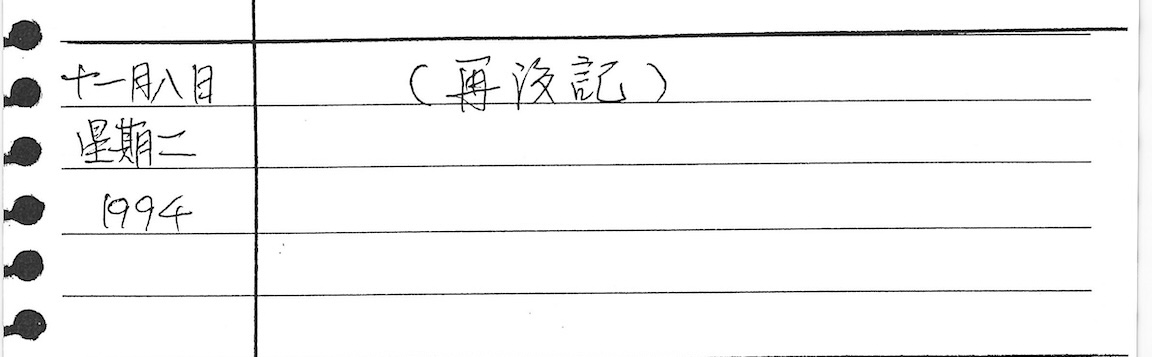 十一月八日
（再没記）
星期二
1994